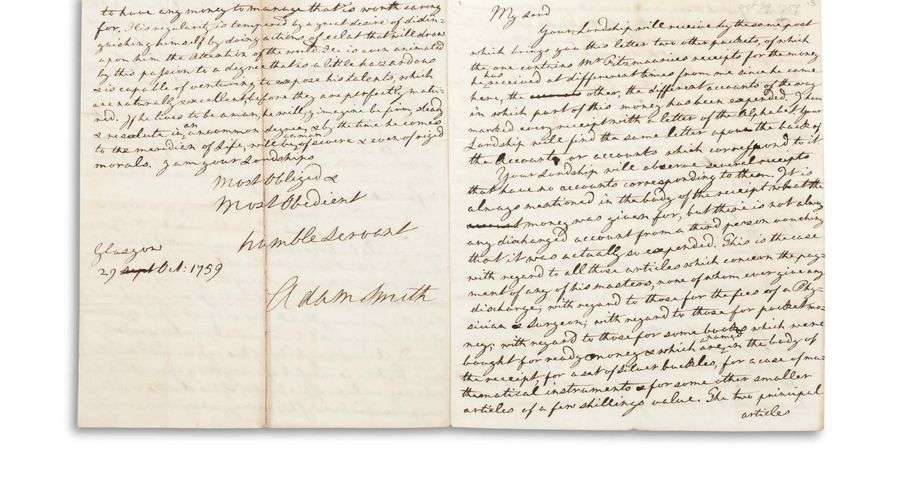 to have any money to manage that is worth caring
for. His regularity is tempered by a great desire of distin-
guishing himself by doing actions of eclat that will draw
upon him the Attention of the world. He is even animated
by this passion to a degree that is a little hazardous
& is capable of venturing to expose his talents, which
are naturally excellent, before they are perfectly matu-
red. If he lives to be a man, he will, I imagine be firm, steady
& resolute in an uncommon degree, & by the time he comes
to the meridian of life, will be a man of severe & even of rigid
morals. I am your Lordships
Most Obliged &
Most Obedient
humble Servant
Glasgow
29 Sept Oct: 1759
Adam Smith
My Lord
Your Lordship will receive by the same post
which brings you this letter two other packets, of which
the one contains Mr Fitzmaurices receipts for the money
he has received at different times from me since he came
here, the other, the different accounts of the way
in which part of this money has been expended. I have
marked every receipt with a letter of the Alphabet. Your
Lordship will find the same letter upon the back of
the Account, or accounts which correspond to it.
Your Lordship will observe several receipts
that have no accounts corresponding to them. It is
always mentioned in the body of the receipt what the
money was given for, but there is not always
any discharged account from a third person vouching
that it was actually so expended. This is the case
with regard to all those articles which concern the pay-
ment of any of his masters, none of whom ever give any
discharge; with regard to those for the fees of a Phy-
sician & Surgeon; with regard to those for pocket mo-
ney; with regard to those for some books which were
bought for ready money & which are named in the body of
the receipt, for a set of silver buckles, for a case of ma-
thematical instruments & for some other smaller
articles of a few shillings value. The two principal
articles